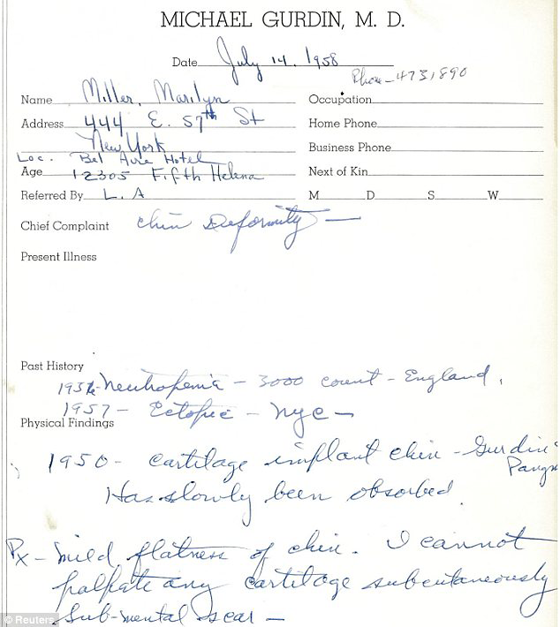 MICHAEL GURDIN, M. D.
Date July 14, 1958
Phone - 4731890
Name Miller, Marilyn
Occupation
Address 444 E. 57th St
Home Phone
New York
Business Phone
Loc. Bel Aire Hotel
Age 12305 Fifth Helena
Next of Kin
Referred By L.A
M D S W
Chief Complaint chin deformity —
Present Illness
Past History
1956 - Neutropenia - 3000 count - England.
1957 - Ectopic - NYC -
Physical Findings
1950 - cartilage implant chin - Gurdin
Has slowly been absorbed.
Px - mild flatness of chin. I cannot
palpate any cartilage subcutaneously
Sub-mental scar -
© Reuters